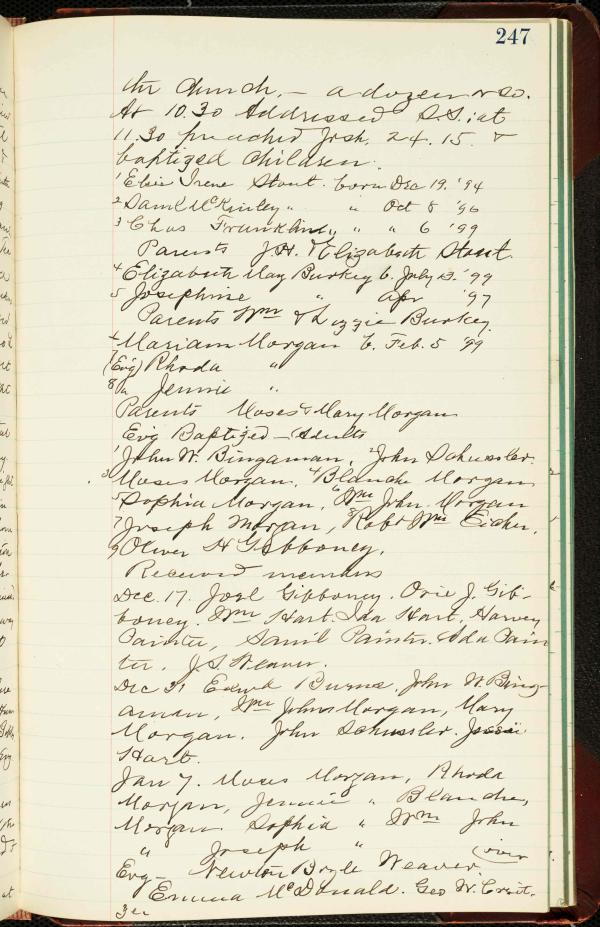 247
the Church,- a dozen or so.
At 10.30 Addressed S.S.; at
11.30 preached Josh. 24. 15. &
baptized children.
1 Elsie Irene Stout. born Dec 19. '94
2 Saml McKinley " " Oct 8 '96
3 Chas Franklin " " 6 '99
Parents J.H. & Elizabeth Stout.
4 Elizabeth May Burkey b. July 13. '99
5 Josephine " Apr '97
Parents Wm & Lizzie Burkey.
Mariam Morgan b. Feb. 5 '99
(Evg) Rhoda "
8 " Jennie "
Parents Moses & Mary Morgan
Evg Baptized - Adults
1 John W. Bingaman, 2 John Schussler.
3 Moses Morgan, 4 Blanche Morgan
5 Sophia Morgan, 6 Wm John Morgan
7 Joseph Morgan, 8 Robt Wm Eicher,
9 Oliver H Gibboney.
Received members
Dec. 17. Joel Gibboney. Ovie J. Gib-
boney. Wm Hart. Ida Hart, Harvey
Painter, Saml Painter. Ada Pain
ter. J.S. Weaver.
Dec 31 Edwd Burns, John W. Bing-
aman, Wm John Morgan, Mary
Morgan. John Schussler. Jessie
Hart.
Jan 7. Moses Morgan, Rhoda
Morgan, Jennie " Blanche,
Morgan Sophia " Wm John
" Joseph " (over
Evg- Newton Boyle Weaver.
Emma McDonald. Geo W. Croit.